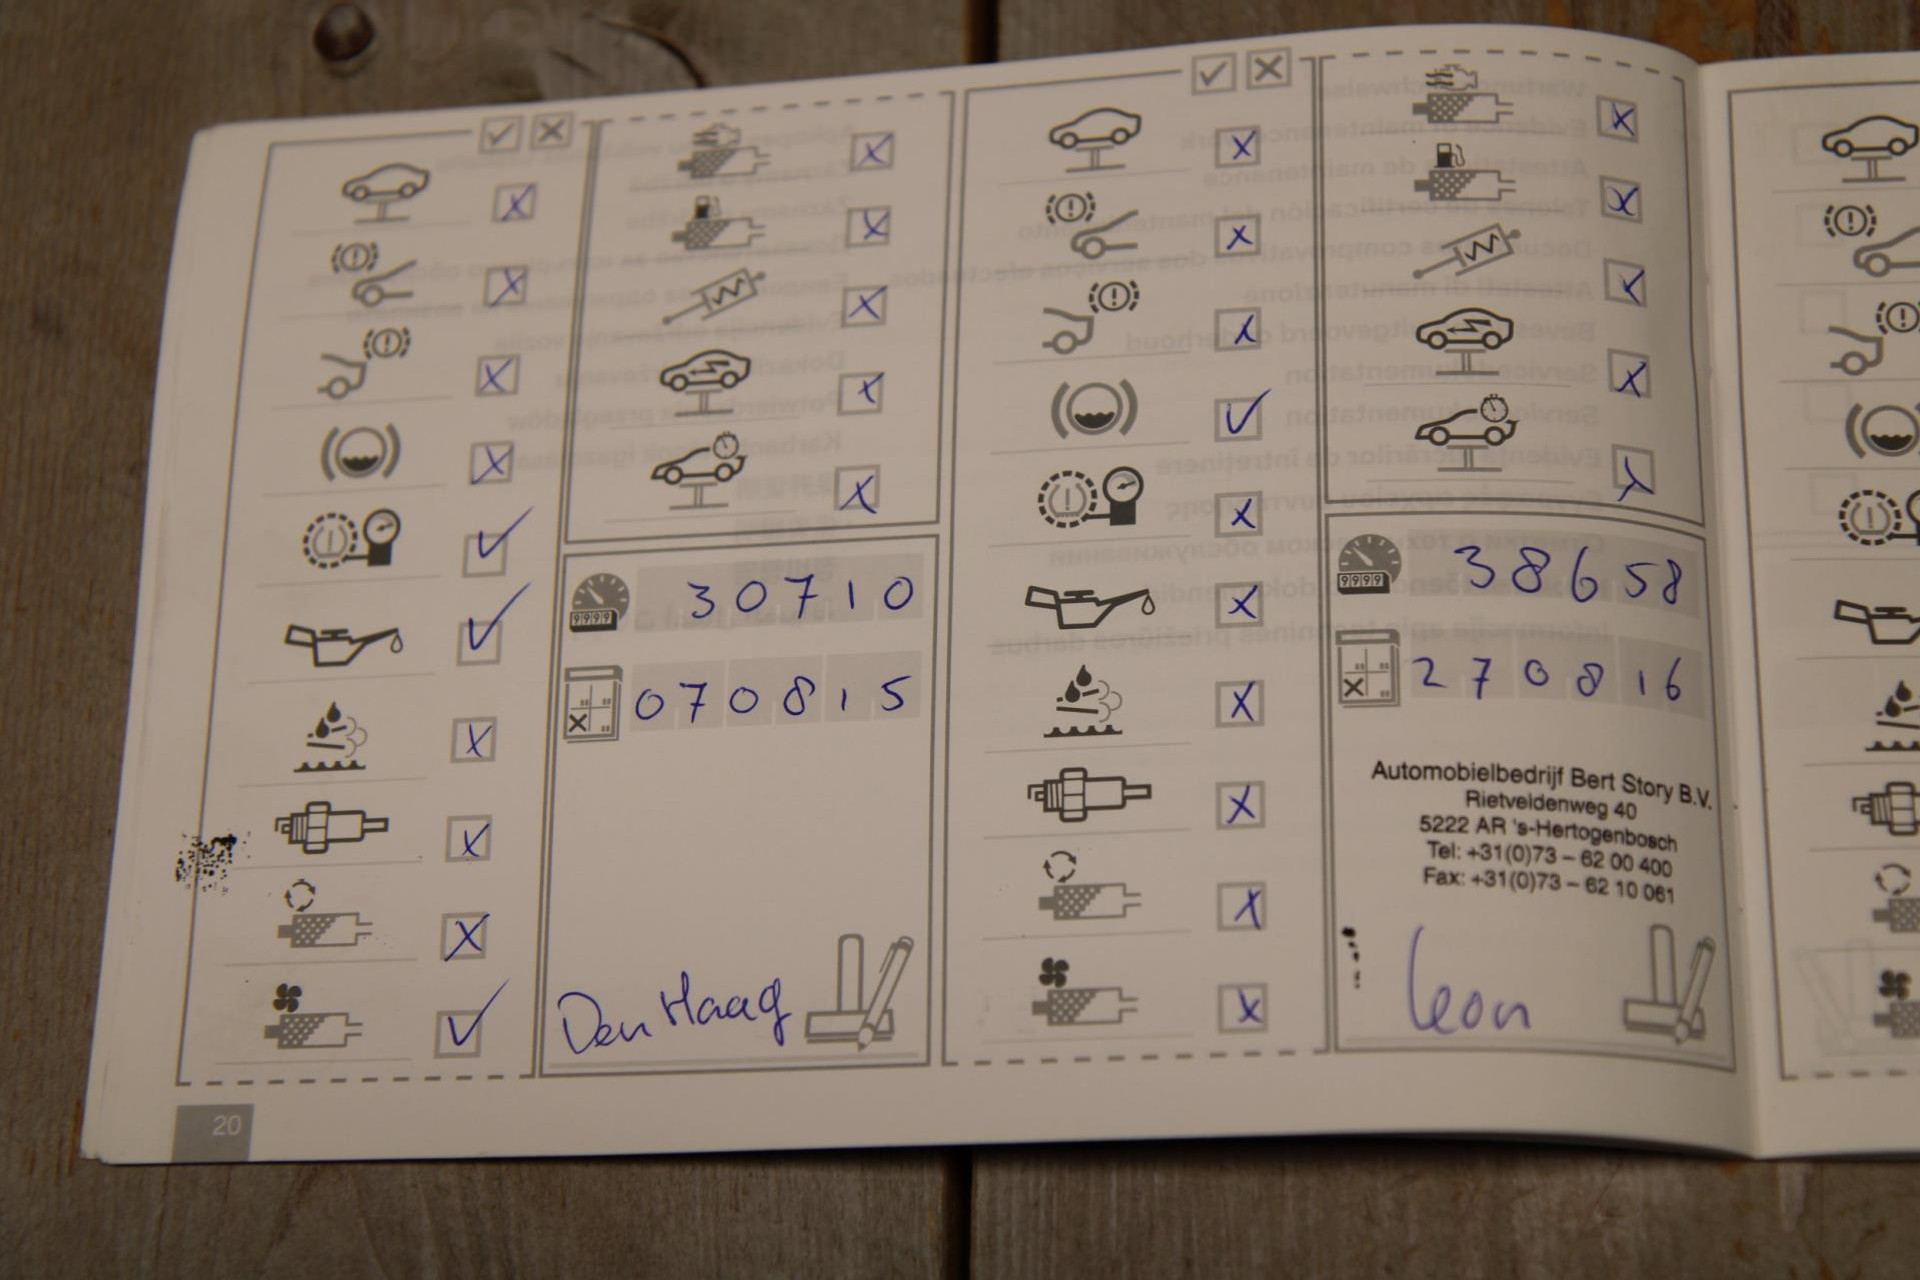 30710
070815
Den Haag
38658
270816
Automobielbedrijf Bert Story B.V.
Rietveldenweg 40
5222 AR 's-Hertogenbosch
Tel: +31(0)73 – 62 00 400
Fax: +31(0)73 – 62 10 061
leon
20